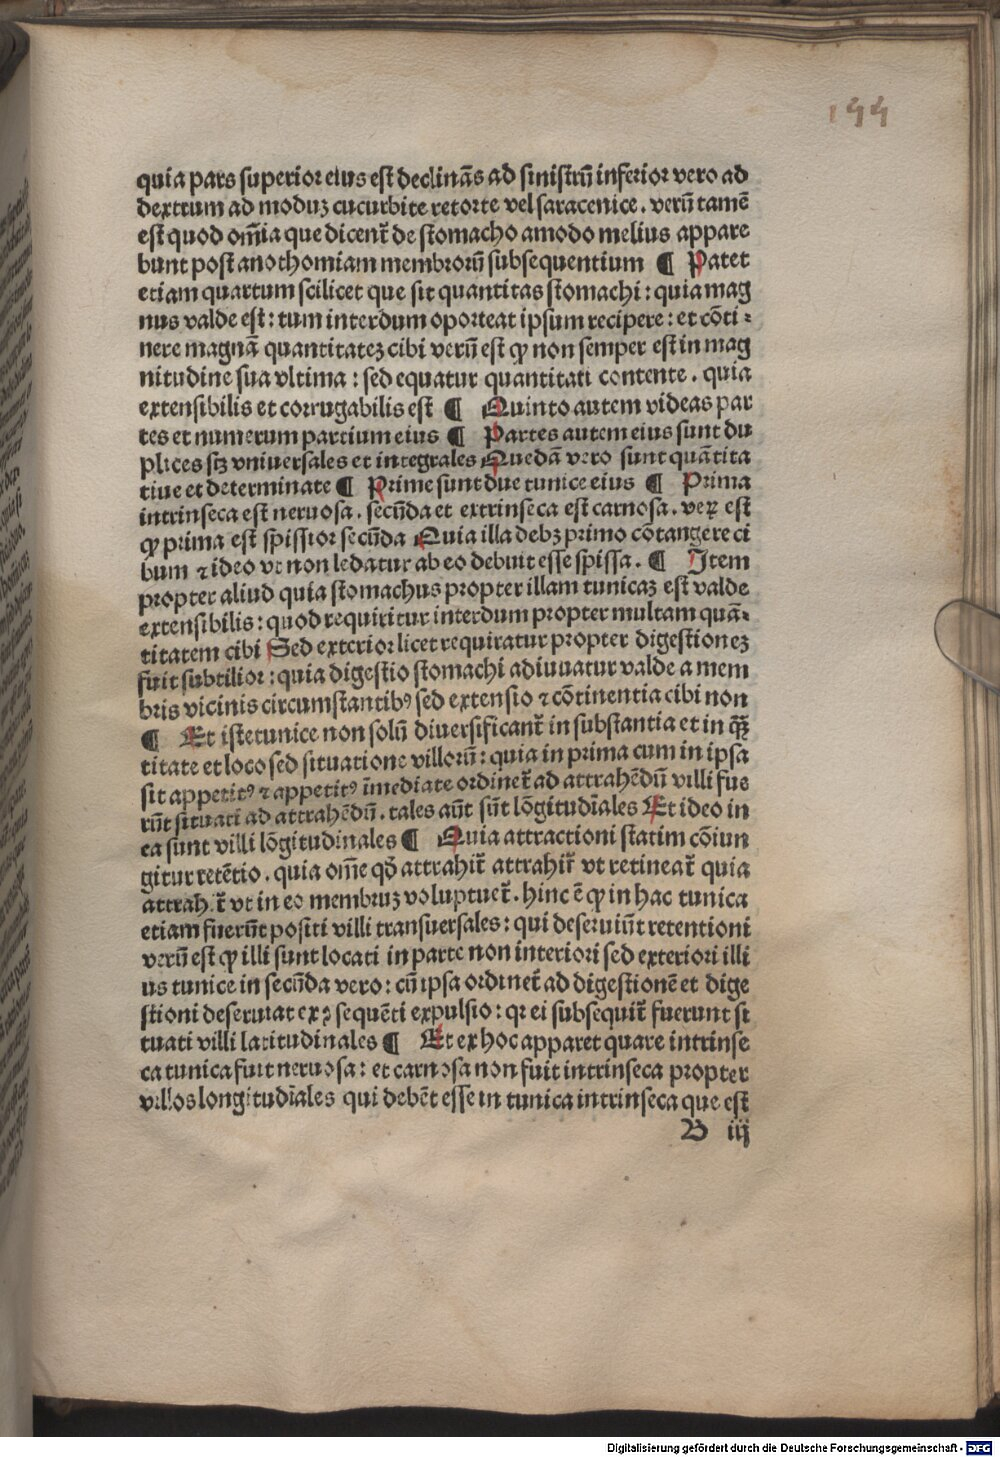 144
quia pars superior eius est declinãs ad sinistrũ inferior vero ad
dextrum ad moduꝫ cucurbite retorte vel saracenice. verũ tamẽ
est quod om̃ia que dicent̃ de stomacho amodo melius appare
bunt post anothomiam membrorũ subsequentium ¶ Patet
etiam quartum scilicet que sit quantitas stomachi: quia mag
nus valde est: tum interdum oporteat ipsum recipere: et cõti⸗
nere magnã quantitateꝫ cibi verũ est ꝙ non semper est in mag
nitudine sua vltima: sed equatur quantitati contente. quia
extensibilis et corrugabilis est ¶ Quinto autem videas par
tes et numerum partium eius ¶ Partes autem eius sunt du
plices sꝫ vniuersales et integrales Quedã vero sunt quãtita
tiue et determinate ¶ Prime sunt due tunice eius ¶ Prima
intrinseca est neruosa. secũda et extrinseca est carnosa. veꝝ est
ꝙ prima est spissior secũda Quia illa debꝫ primo cõtangere ci
bum ⁊ ideo vt non ledatur ab eo debuit esse spissa. ¶ Item
propter aliud quia stomachus propter illam tunicaꝫ est valde
extensibilis: quod requiritur interdum propter multam quã⸗
titatem cibi Sed exterior licet requiratur propter digestioneꝫ
fuit subtilior: quia digestio stomachi adiuuatur valde a mem
bris vicinis circumstantibꝰ sed extensio ⁊ cõtinentia cibi non
¶ Et iste tunice non solũ diuersificant̃ in substantia et in q̃ꝫ
titate et loco sed situatione villorũ: quia in prima cum in ipsa
sit appetitꝰ ⁊ appetitꝰ ĩmediate ordinet̃ ad attrahẽdũ villi fue
rũt situati ad attrahẽdũ. tales aũt sũt lõgitudĩales Et ideo in
ea sunt villi lõgitudinales ¶ Quia attractioni statim cõiun
gitur retẽtio. quia om̃e qđ attrahit̃ attrahit̃ vt retineat̃ quia
attrahit̃ vt in eo membruꝫ voluptuet̃. hinc ẽ ꝙ in hac tunica
etiam fuerũt positi villi transuersales: qui deseruiũt retentioni
verũ est ꝙ illi sunt locati in parte non interiori sed exteriori illi
us tunice in secũda vero: cũ ipsa ordinet̃ ad digestionẽ et dige
stioni deseruiat exp̃ sequẽti expulsio: qꝛ ei subsequit̃ fuerunt si
tuati villi latitudinales ¶ Et ex hoc apparet quare intrinse
ca tunica fuit neruosa: et carnosa non fuit intrinseca propter
villos longitudĩales qui debẽt esse in tunica intrinseca que est
B iij
Digitalisierung gefördert durch die Deutsche Forschungsgemeinschaft - DFG